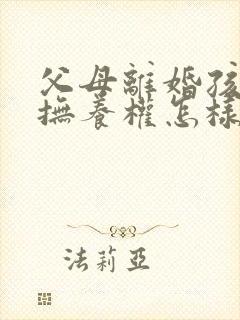 父母離婚孩
撫養權怎樣
法莉亞